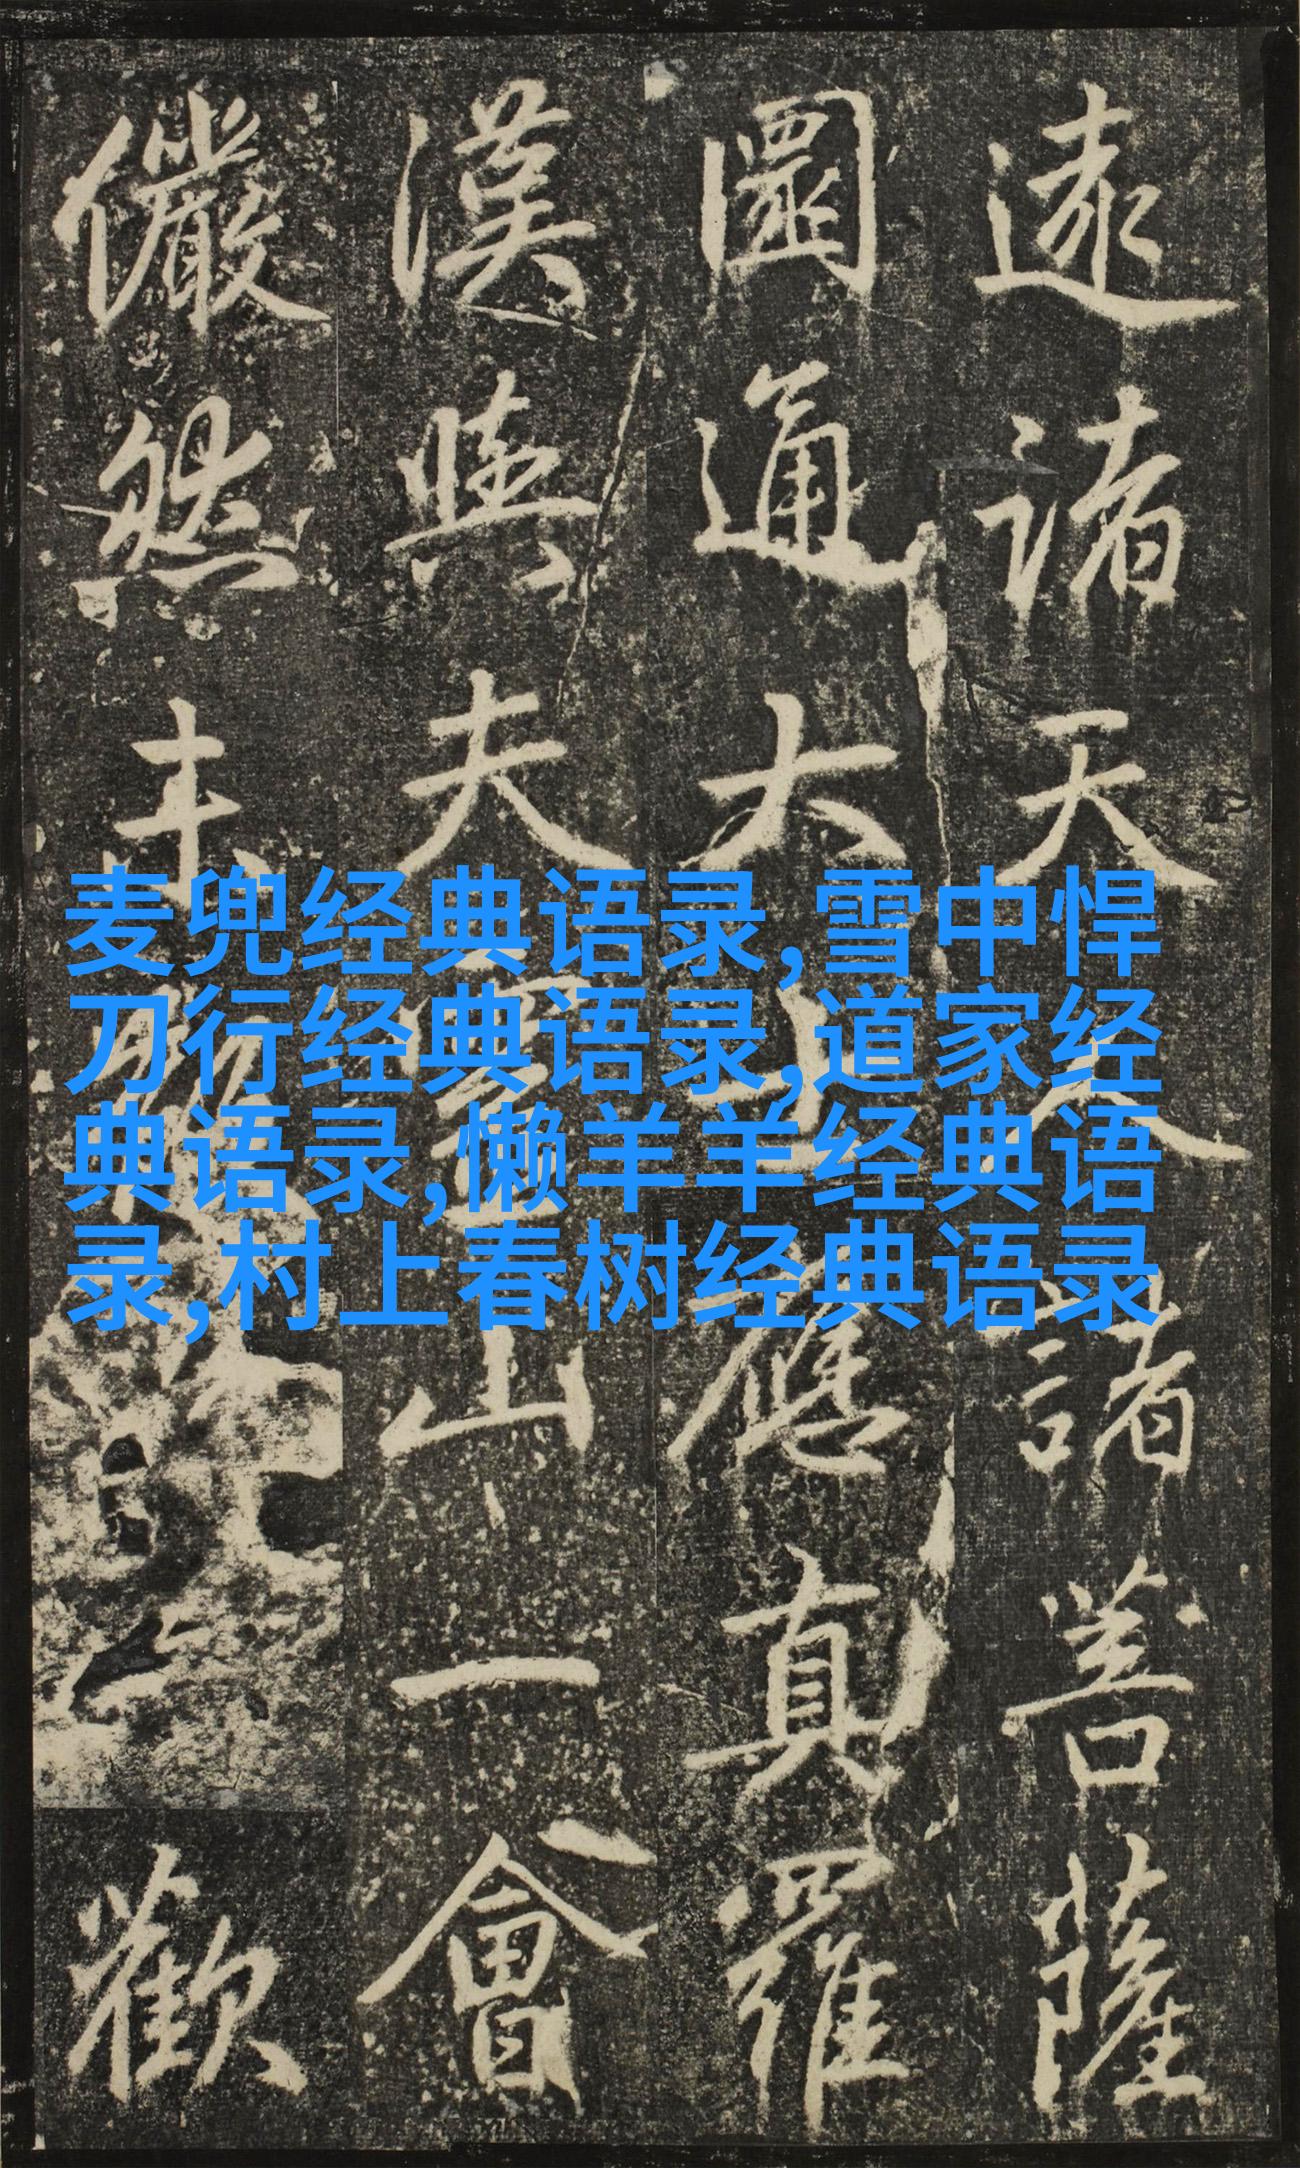 遠諸天人諸菩薩
圓通大士應真羅
漢與夫靈山一會
儼然未歡
麦兜经典语录,雪中悍
刀行经典语录,道家经
典语录,懒羊羊经典语
录,村上春树经典语录